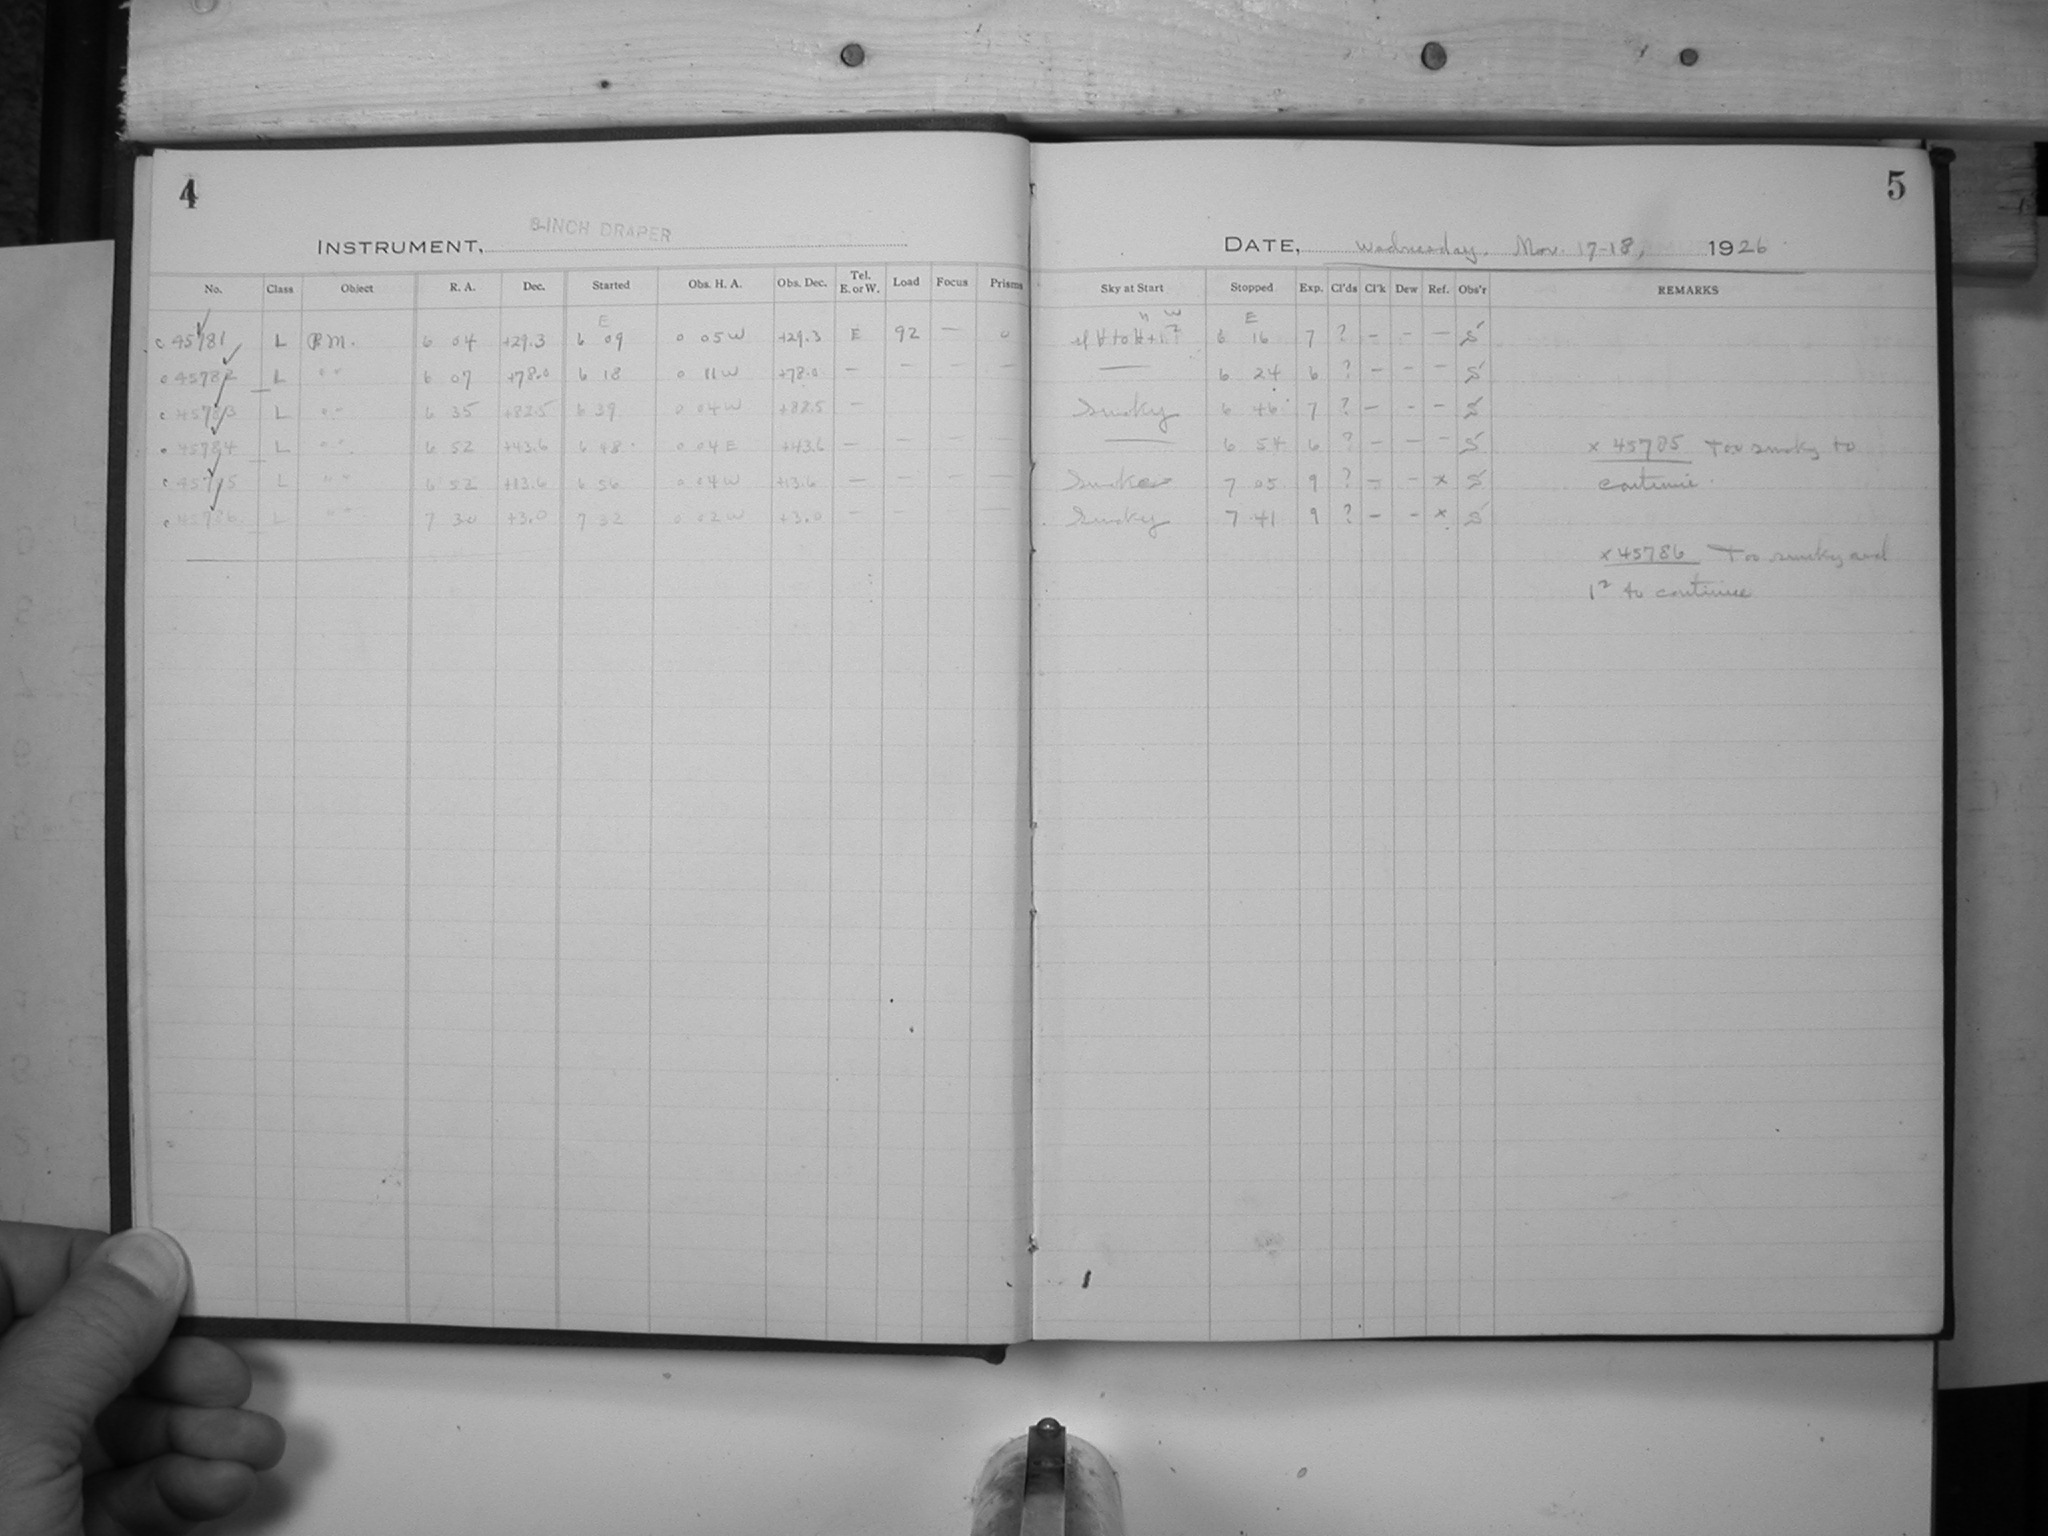 4
INSTRUMENT, 8-INCH DRAPER
No. Class Object R. A. Dec. Started Obs. H. A. Obs. Dec. Tel. E. or W. Load Focus Prisms
E
c 45781 L P.M. 6 04 +29.3 6 09 0 05 W +29.3 E 92 — 0
c 45782 L " " 6 07 +78.0 6 18 0 11 W +78.0 — — — —
c 45783 L " " 6 35 +82.5 6 39 0 04 W +82.5 —
c 45784 L " " 6 52 +43.6 6 48 0 04 E +43.6 — — — —
c 45785 L " " 6 52 +13.6 6 56 0 04 W +13.6 — — — —
c 45786 L " " 7 30 +3.0 7 32 0 02 W +3.0 — — — —
5
DATE, Wednesday, Nov. 17-18, 1926
Sky at Start Stopped Exp. Cl'ds Cl'k Dew Ref. Obs'r REMARKS
E
6 16 7 ? — — — S
— 6 24 6 ? — — — S
Smoky 6 46 7 ? — — — S
— 6 54 6 ? — — — S
7 05 9 ? — — x S
Smoky 7 41 9 ? — — x S
x 45785 Too smoky to
continue.
x 45786 Too smoky and
to continue